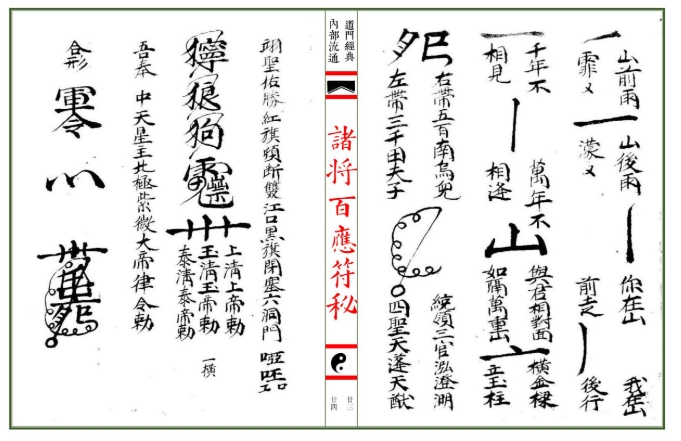 山前雨 山後雨 你在山 我在山
霏〻 濛〻 前走 後行
千年不 萬年不 與君相對面 橫金樑
相見 相逢 山 如隔萬重山 立玉柱
右帶五百南烏兜
左帶三千田夫子
統領三官泓澄湖
四聖天蓬天猷
道門經典
內部流通
諸将百應符秘
廿三
廿四
翊聖佑勝紅旗頭断雙江口黑旗閉塞六洞門
獰狠狗
上清上帝勅
玉清玉帝勅
泰清泰帝勅
一橫
吾奉 中天星主北極紫微大帝律令勅
合形